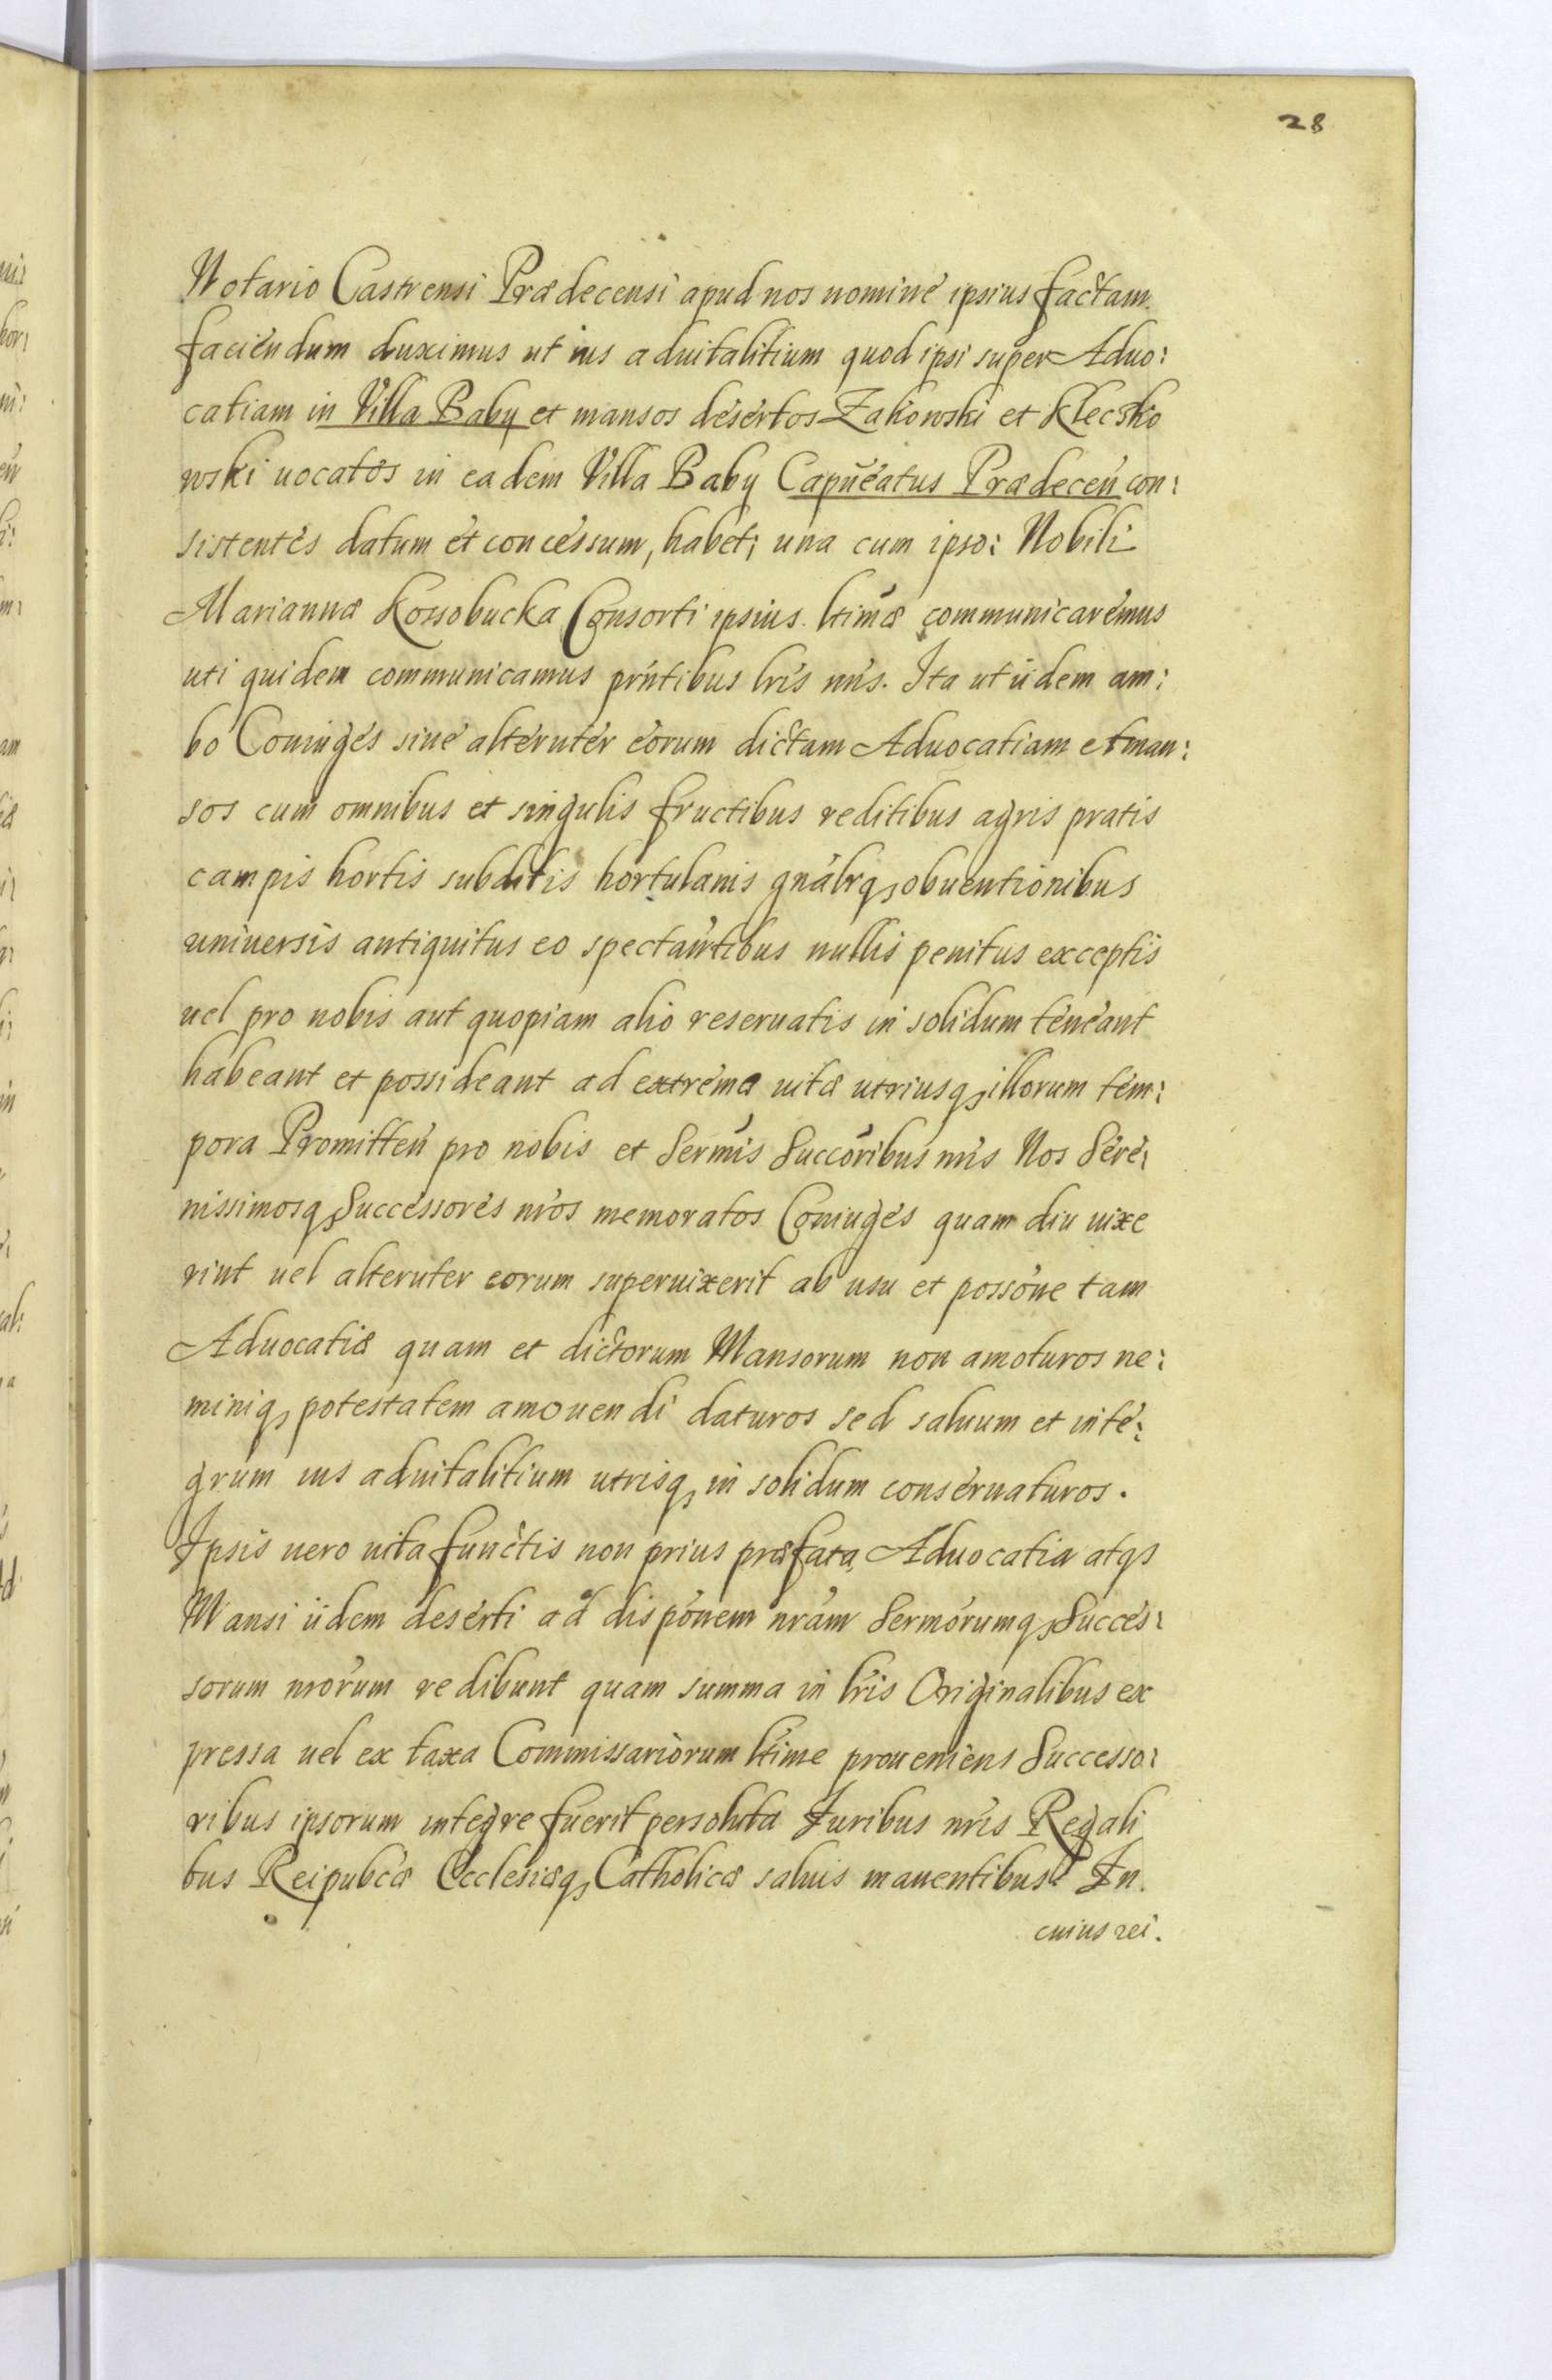 28
Notario Castrensi Prædecensi apud nos nomine ipsius factam
faciendum duximus ut ius aduitalitium quod ipsi super Aduo:
catiam in Villa Baby et mansos desertos Zakowski et Kleczko
wski uocatos in eadem Villa Baby Capñeatus Prædeceń con:
sistentes datum et concessum, habet; una cum ipso: Nobili
Mariannæ Kossobucka Consorti ipsius ltimæ communicaremus
uti quidem communicamus prńtibus lris nris. Ita ut iidem am:
bo Coniuges siue alteruter eorum dictam Aduocatiam et man:
sos cum omnibus et singulis fructibus reditibus agris pratis
campis hortis subditis hortulanis gnalrq, obuentionibus
uniuersis antiquitus eo spectantibus nullis penitus exceptis
uel pro nobis aut quopiam alio reseruatis in solidum teneant
habeant et possideant ad extrema uitæ utriusq, illorum tem:
pora Promitteń pro nobis et Sermis Succoribus nris Nos Sere:
nissimosq, Successores nros memoratos Coniuges quam diu uixe
rint uel alteruter eorum superuixerit ab usu et possone tam
Aduocatiæ quam et dictorum Mansorum non amoturos ne:
miniq, potestatem amouendi daturos sed saluum et inte:
grum ius aduitalitium utrisq, in solidum conseruaturos.
Ipsis uero uita functis non prius præfata Aduocatia atq,
Mansi iidem deserti ad disponem nram Sermorumq, Succes:
sorum nrorum redibunt quam summa in lris Originalibus ex
pressa uel ex taxa Commissariorum ltime proueniens Successo:
ribus ipsorum integre fuerit persoluta Iuribus nris Regali
bus Reipubcæ Ecclesiæq, Catholicæ saluis manentibus. In
cuius rei.